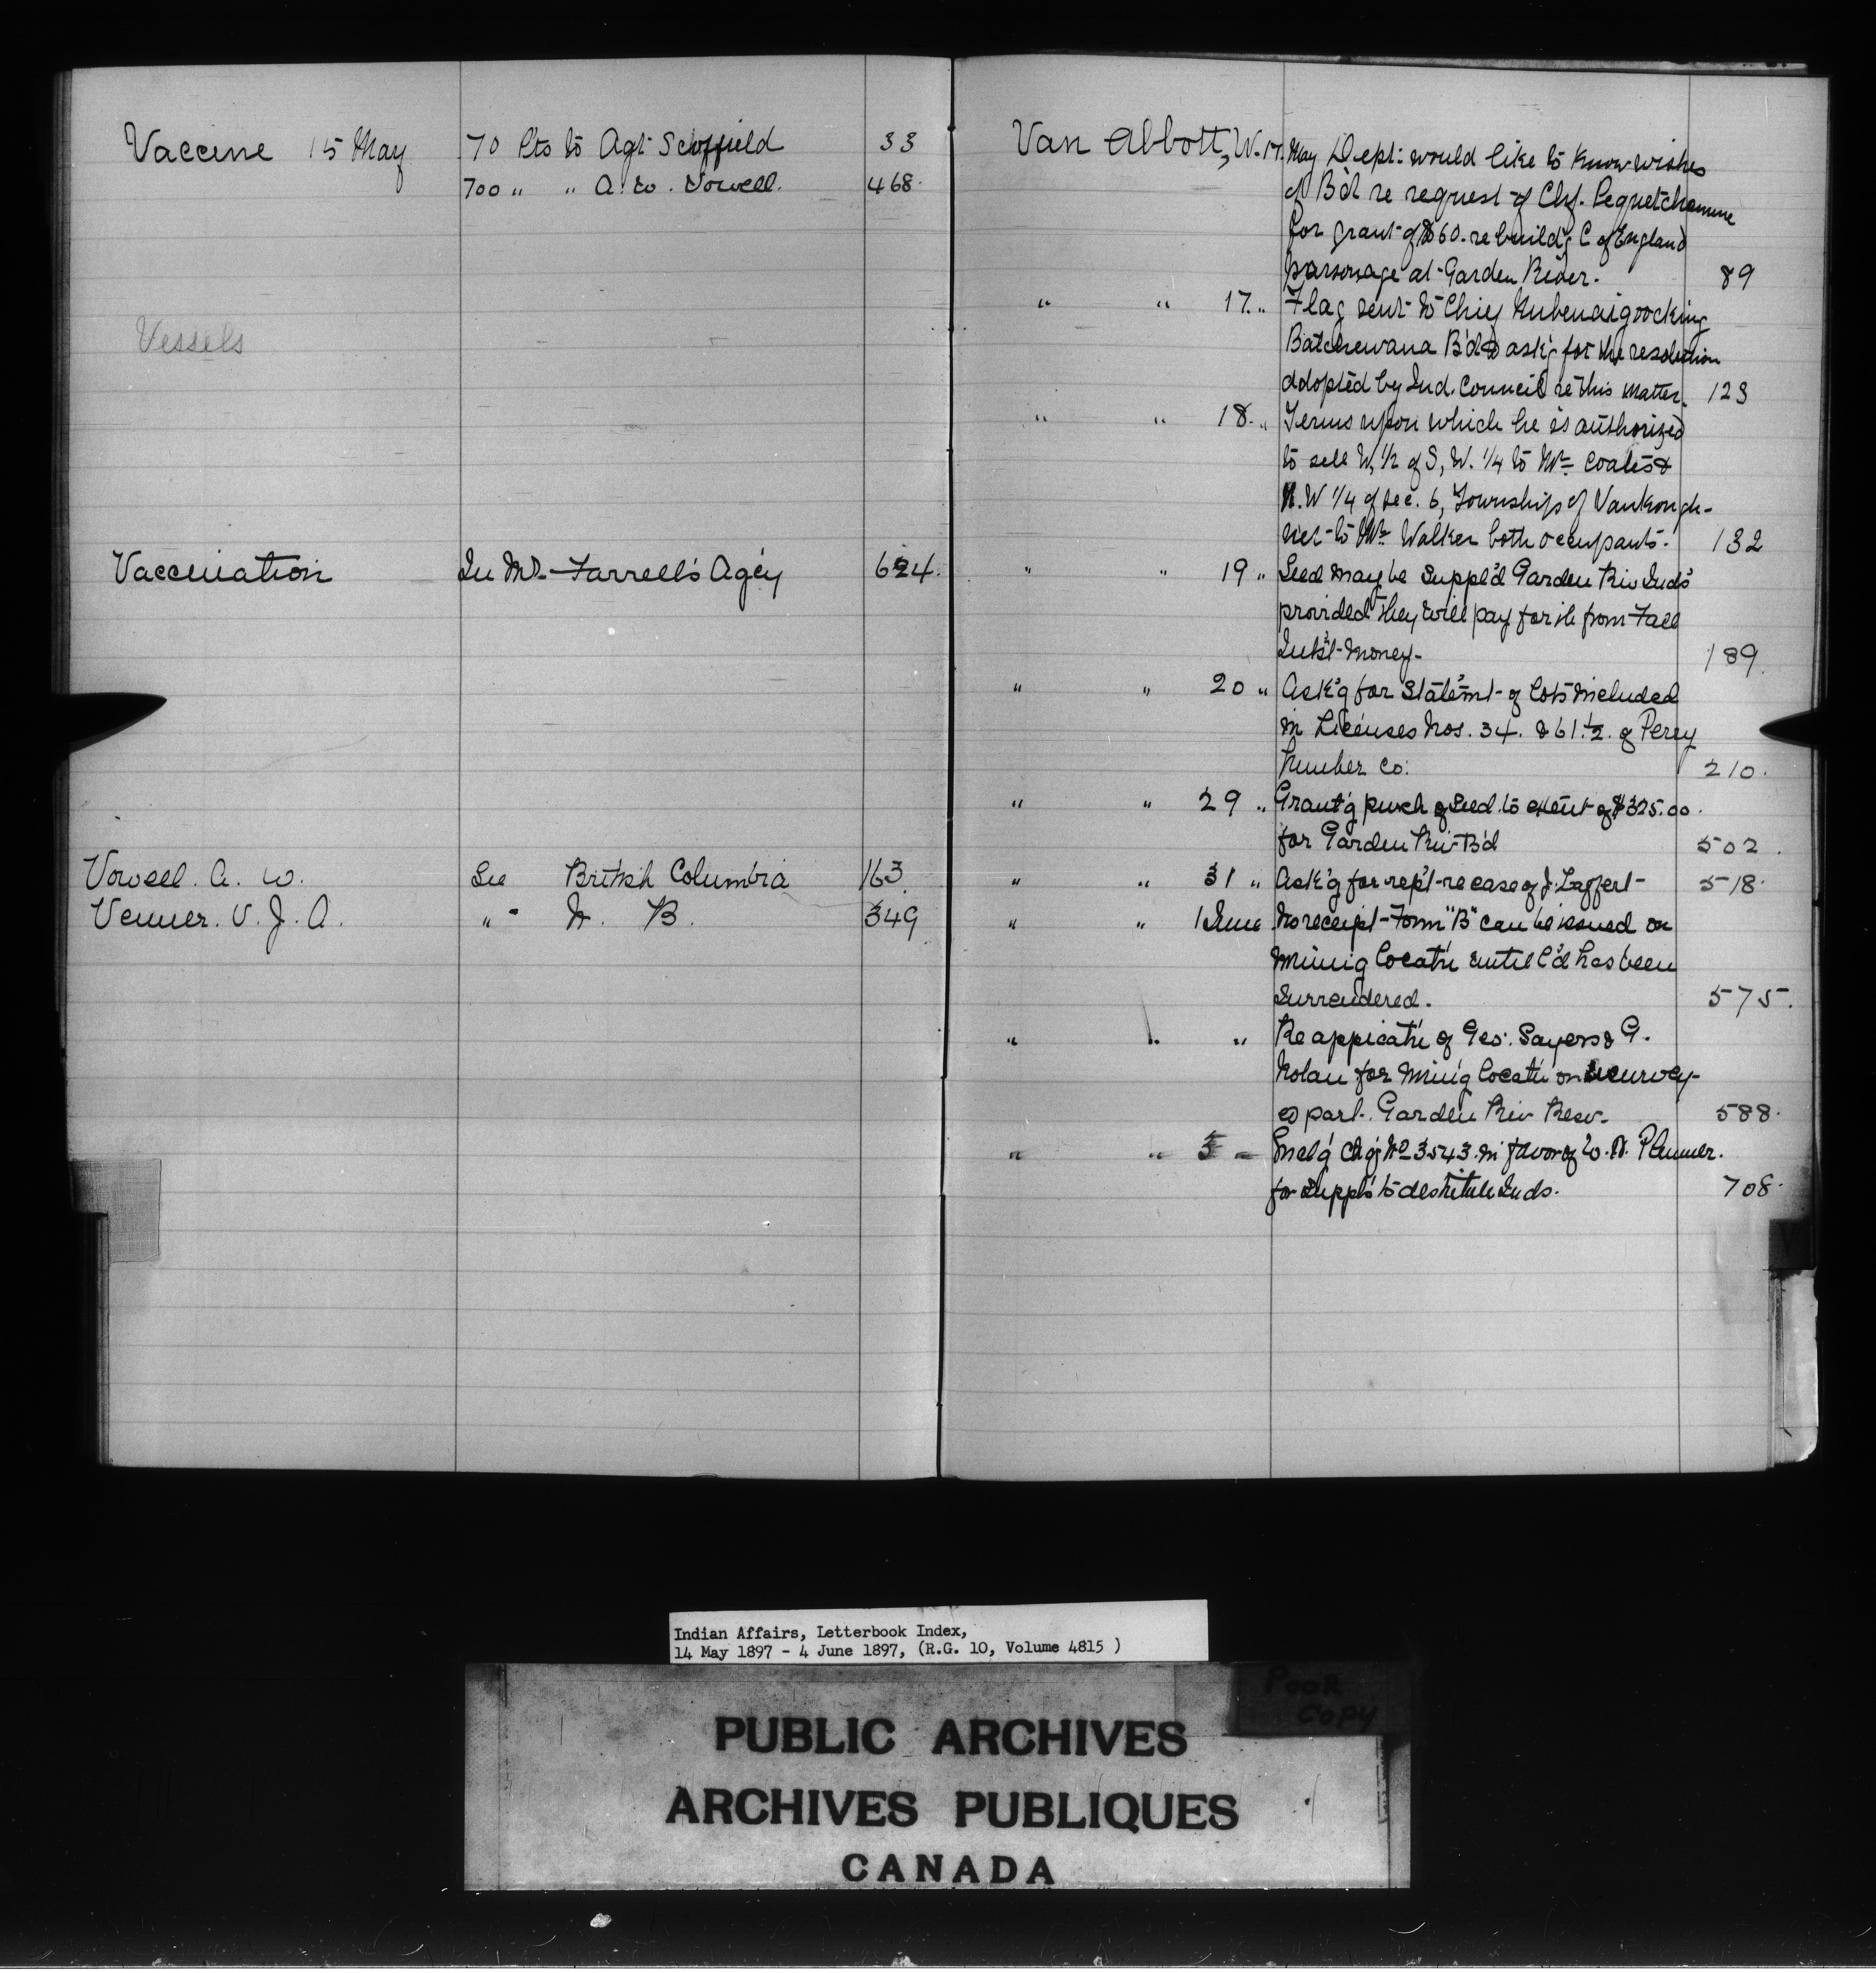 Vaccine 15 May 70 Pts to Agt Scoffield 33
700 " " A. W. Vowell. 468.
Vessels
Vaccination In Mr. Farrell's Agcy 624.
Vowell. A. W. See British Columbia 163
Venner. V. J. A. " - N. B. 349
Van Abbott, W. 17. May Dept: would like to know wishes
of B'd re request of Chf. Pequetchemune
for grant of $60. re build'g C of England
parsonage at Garden River. 89
" " 17. " Flag sent to Chief Nubenaigoocking
Batchewana B'd & ask'g for the resolution
adopted by Ind. Council re this matter. 123
" " 18. " Terms upon which he is authorized
to sell W, 1/2 of S, W. 1/4 to Mr. Coates &
N. W 1/4 of Sec. 6, Townships of Vankough-
net to Mr. Walker both occupants. 132
" " 19 " Seed may be suppl'd Garden Riv Inds
provided they will pay for it from Fall
Int'st Money - 189
" " 20 " Ask'g for Statem't of lots included
in Licenses Nos. 34. & 61 1/2. of Perry
Lumber Co: 210.
" " 29 " Grant'g purch of Seed to extent of $325.00.
for Garden Riv B'd 502.
" " 31 " Ask'g for rep't re case of J. Laffert 518.
" " 1 June No receipt Form "B" can be issued on
mining locat'n until l'd has been
Surrendered. 575.
" " " Re appicat'n of Geo: Sayers & G.
Nolan for min'g locat'n on unsurvey-
ed part. Garden Riv Resv. 588.
" " 3 " Encl'g Chq No 3543. in favor of W. H. Plummer.
for suppl's to destitute Inds. 708.
Indian Affairs, Letterbook Index,
14 May 1897 - 4 June 1897, (R.G. 10, Volume 4815 )
POOR
COPY
PUBLIC ARCHIVES
ARCHIVES PUBLIQUES
CANADA